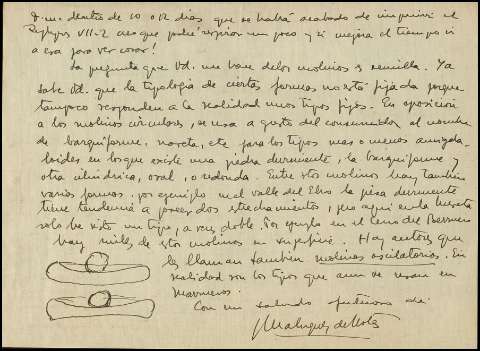 D. m. dentro de 10 o 12 dias que se habrá acabado de imprimir el
VII-2 creo que podré respirar un poco y si mejora el tiempo ir
a esa para ver cosas!
La pregunta que Vd. me hace de los molinos es sencilla. Ya
sabe Vd. que la tipología de ciertas formas no está fijada porque
tampoco responden a la realidad unos tipos fijos. En oposición
a los molinos circulares, se usa a gusto del consumidor el nombre
de barquiforme, naveta, etc. para los tipos mas o menos amigda-
loides en los que existe una piedra durmiente, la barquiforme y
otra cilíndrica, oval, o redonda. Entre estos molinos hay también
varias formas, por ejemplo en el valle del Ebro la pieza durmiente
tiene tendencia a poseer dos estrechamientos, pero aqui en la meseta
solo he visto un tipo, a veces doble. Por ejemplo en el Cerro del Berrueco
hay miles de estos molinos en superficie. Hay autores que
les llaman también molinos oscilatorios. En
realidad son los tipos que aun se usan en
Marruecos.
Con un saludo de
J Maluquer de Motes